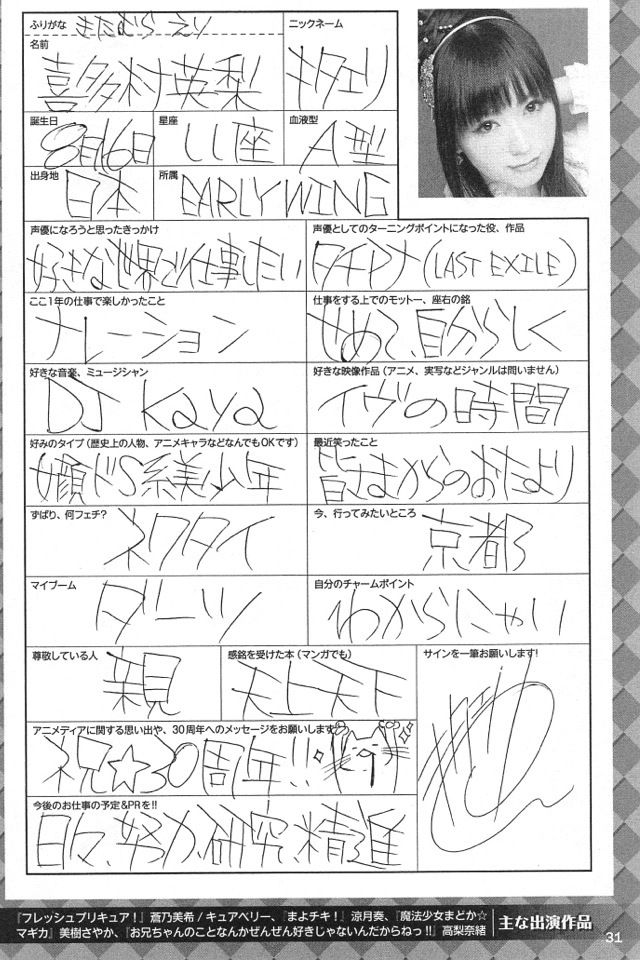 ふりがな きたむら えり
名前
喜多村英梨
ニックネーム
キタエリ
誕生日
8月16日
星座
しし座
血液型
A型
出身地
日本
所属
EARLY WING
声優になろうと思ったきっかけ
好きな世界で仕事したい
声優としてのターニングポイントになった役、作品
タチアナ(LAST EXILE)
ここ1年の仕事で楽しかったこと
ナレーション
仕事をする上でのモットー、座右の銘
せめて、自分らしく
好きな音楽、ミュージシャン
DJ Kaya
好きな映像作品(アニメ、実写などジャンルは問いません)
イヴの時間
好みのタイプ(歴史上の人物、アニメキャラなどなんでもOKです)
女顔ドS系美少年
最近笑ったこと
皆さまからのおたより
ずばり、何フェチ?
ネクタイ
今、行ってみたいところ
京都
マイブーム
ダーツ
自分のチャームポイント
わからにゃい
尊敬している人
親
感銘を受けた本(マンガでも)
天上天下
サインを一筆お願いします!
アニメディアに関する思い出や、30周年へのメッセージをお願いします
祝☆30周年!!
今後のお仕事の予定&PRを!!
日々、努力、研究、精進
『フレッシュプリキュア!』蒼乃美希/キュアベリー、『まよチキ!』涼月奏、『魔法少女まどか☆
マギカ』美樹さやか、『お兄ちゃんのことなんかぜんぜん好きじゃないんだからねっ!!』高梨奈緒
主な出演作品
31